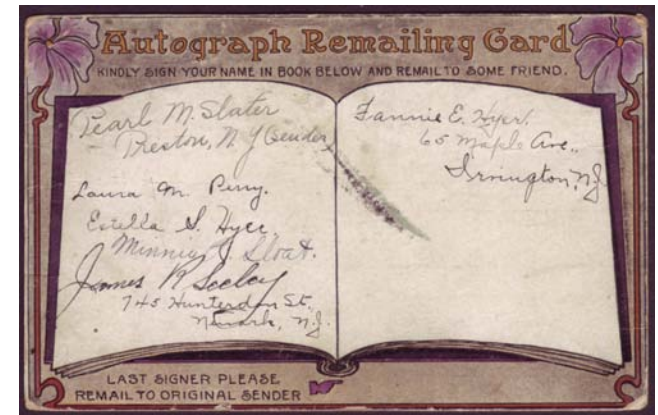 Autograph Remailing Card
KINDLY SIGN YOUR NAME IN BOOK BELOW AND REMAIL TO SOME FRIEND.
Pearl M. Slater
Preston, N. Y. (Sender)
Laura M. Perry.
Estella S. Hyer.
Minnie J. Sloat.
James R Seeley
745 Hunterdon St.
Newark, N.J.
Fannie E. Hyer.
65 Maple Ave.,
Irvington, NJ
LAST SIGNER PLEASE
REMAIL TO ORIGINAL SENDER